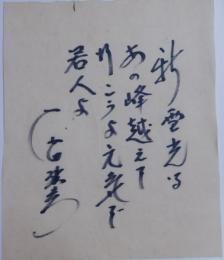 新雪光る
あの峰越えて
行こうよ元気で
若人よ